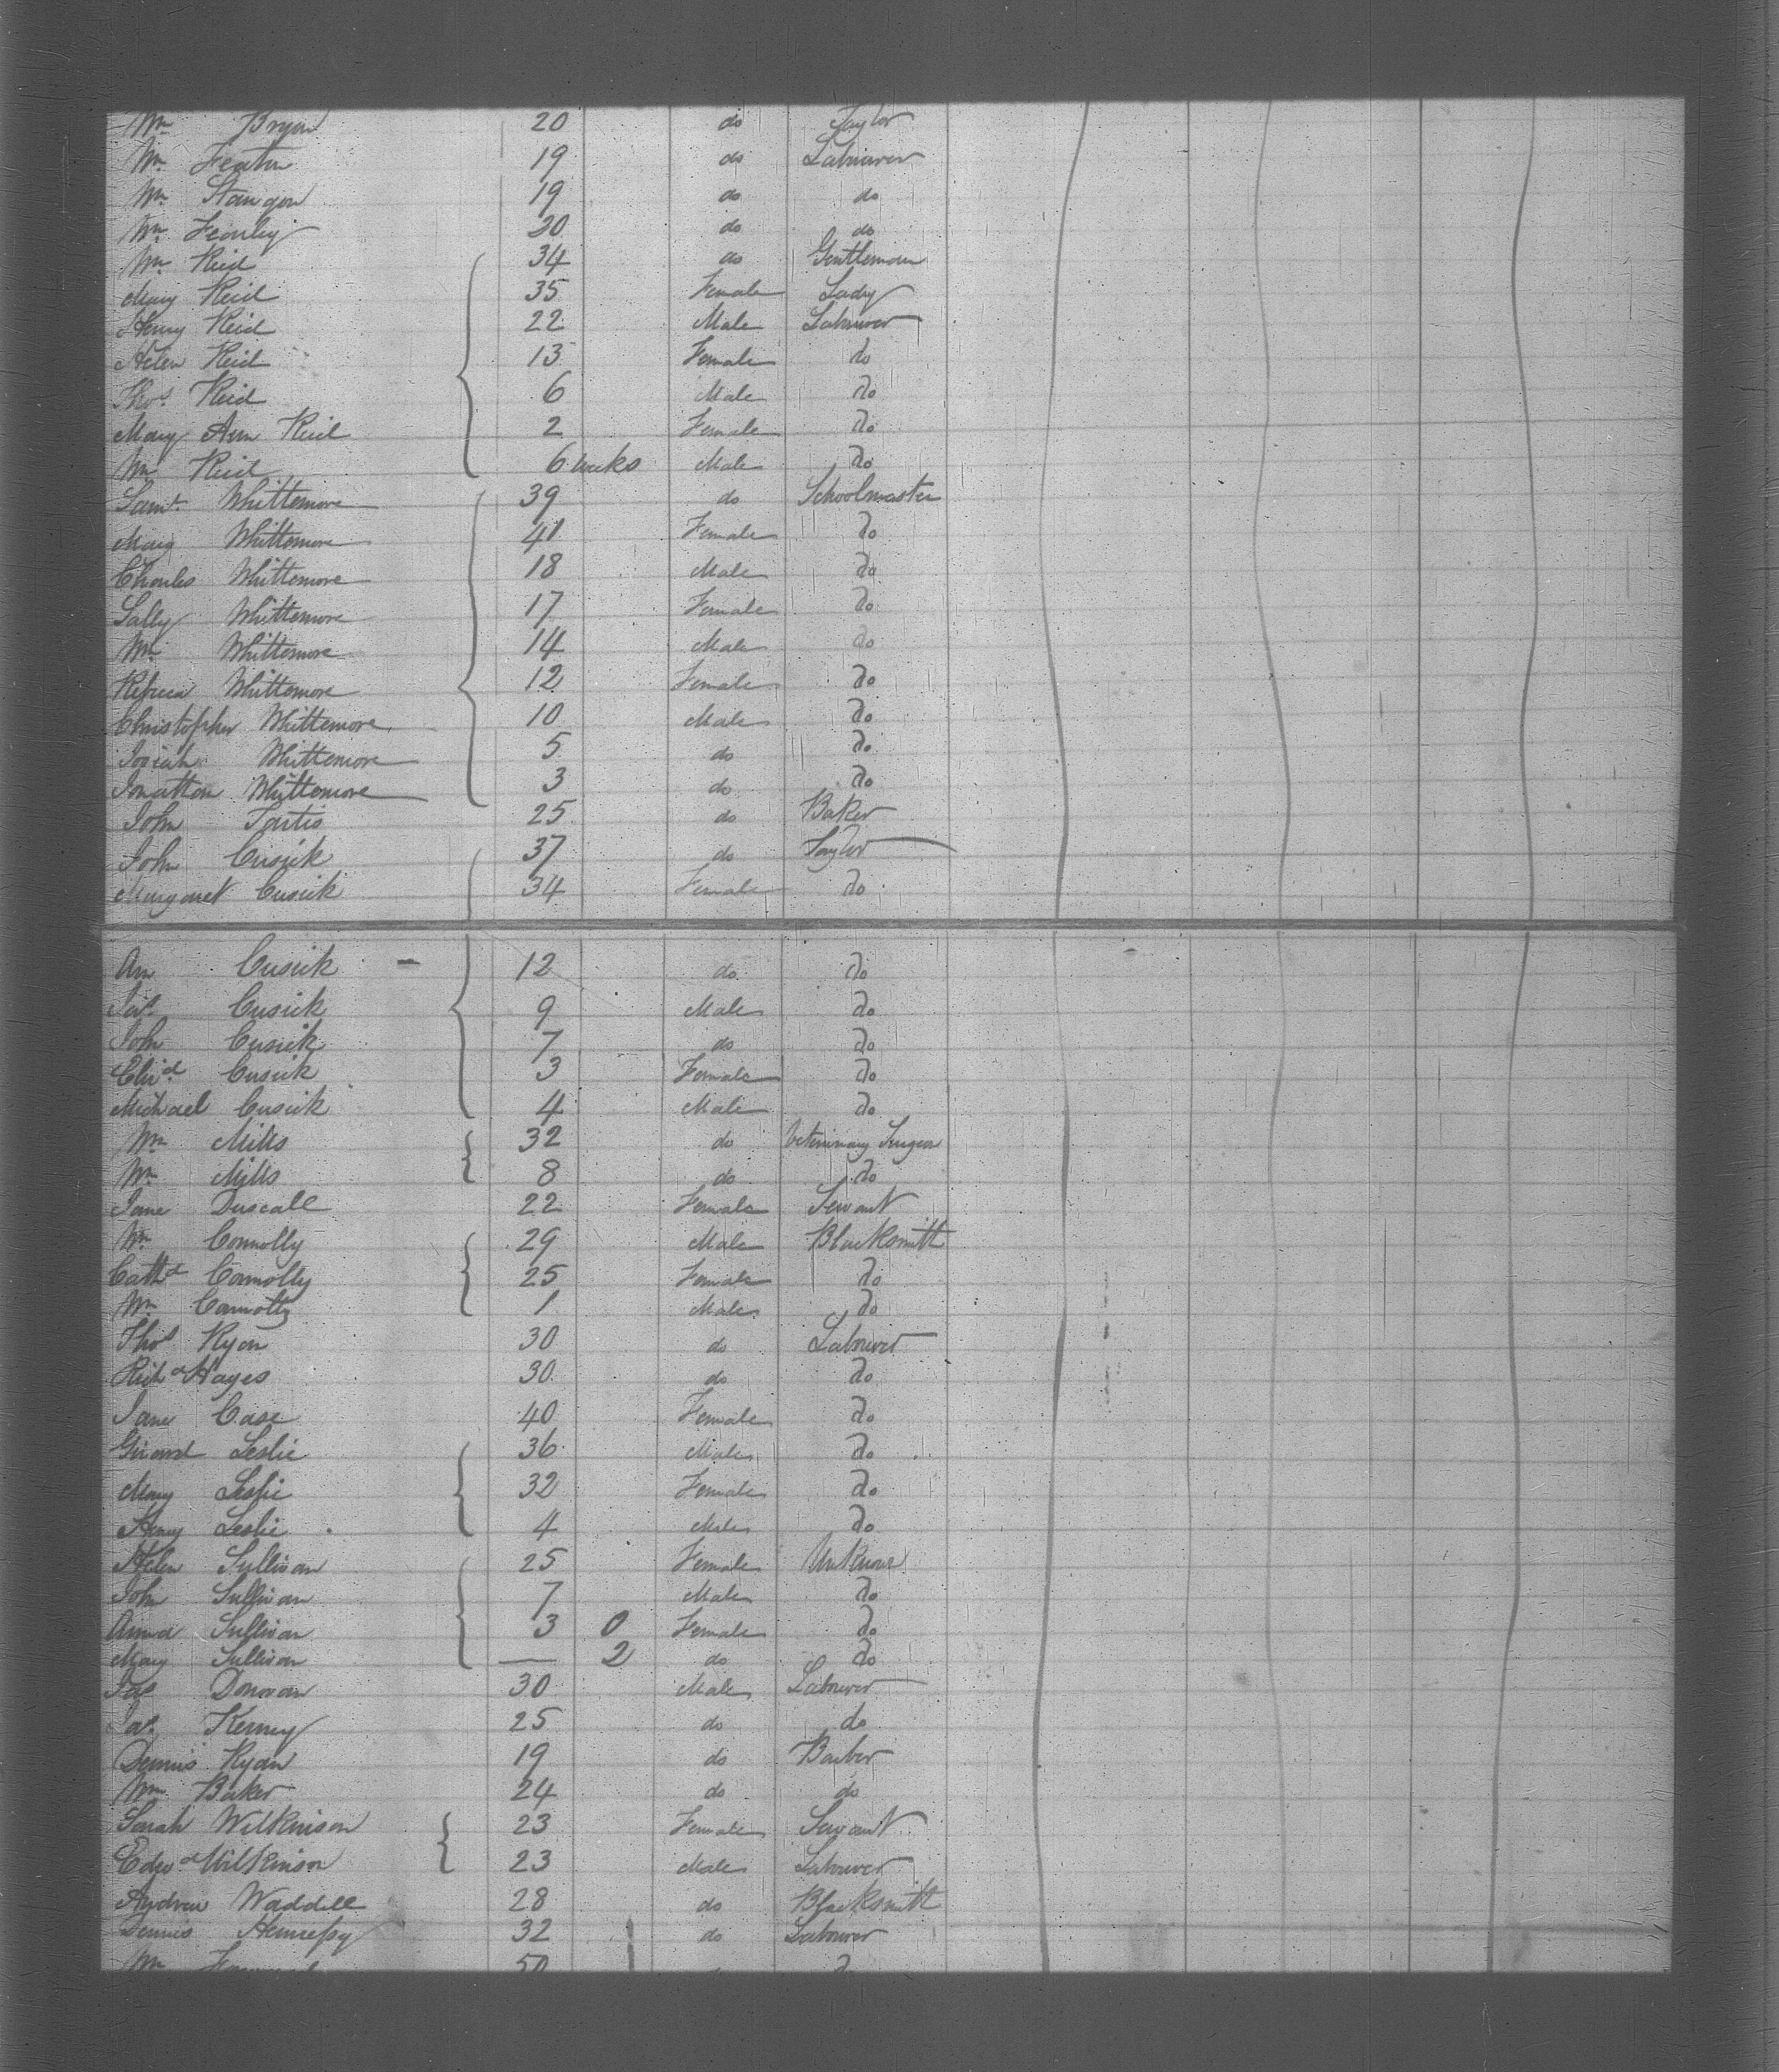 Wm Bryan 20 do Taylor
Wm Heaton 19 do Labourer
Wm Stangon 19 do do
Wm Fernley 30 do do
Wm Reid 34 do Gentleman
Mary Reid 35 Female Lady
Henry Reid 22 Male Labourer
Helen Reid 13 Female do
Thos Reid 6 Male do
Mary Ann Reid 2 Female do
Wm Reid 6 weeks Male do
Saml Whittemore 39 do Schoolmaster
Mary Whittemore 41 Female do
Charles Whittemore 18 Male do
Sally Whittemore 17 Female do
Wm Whittemore 14 Male do
Rebecca Whittemore 12 Female do
Christopher Whittemore 10 Male do
Josiah Whittemore 5 do do
Jonatton Whittemore 3 do do
John 25 do Baker
John Cusick 37 do Taylor
Margaret Cusick 34 Female do
An Cusick 12 do do
Jas Cusick 9 Male do
John Cusick 7 do do
Cusick 3 Female do
Michael Cusick 4 Male do
Wm Mills 32 do Veterinary Surgeon
Wm Mills 8 do do
Jane Duscall 22 Female Servant
Wm Connolly 29 Male Blacksmith
Cathe Connolly 25 Female do
Wm Connolly 1 Male do
Thos Ryan 30 do Labourer
Richd Hayes 30 do do
Jane Case 40 Female do
Leslie 36 Male do
Mary Leslie 32 Female do
Henry Leslie 4 Male do
Helen Sullivan 25 Female Unknown
John Sullivan 7 Male do
Anna Sullivan 3 0 Female do
Mary Sullivan — 2 do do
Jas Donovan 30 Male Labourer
Jas Kerney 25 do do
Dennis Ryan 19 do Barber
Wm Baker 24 do do
Sarah Wilkinson 23 Female Servant
Edwd Wilkinson 23 Male Labourer
Andrew Waddell 28 do Blacksmith
Dennis Hennessy 32 do Labourer
Wm 50